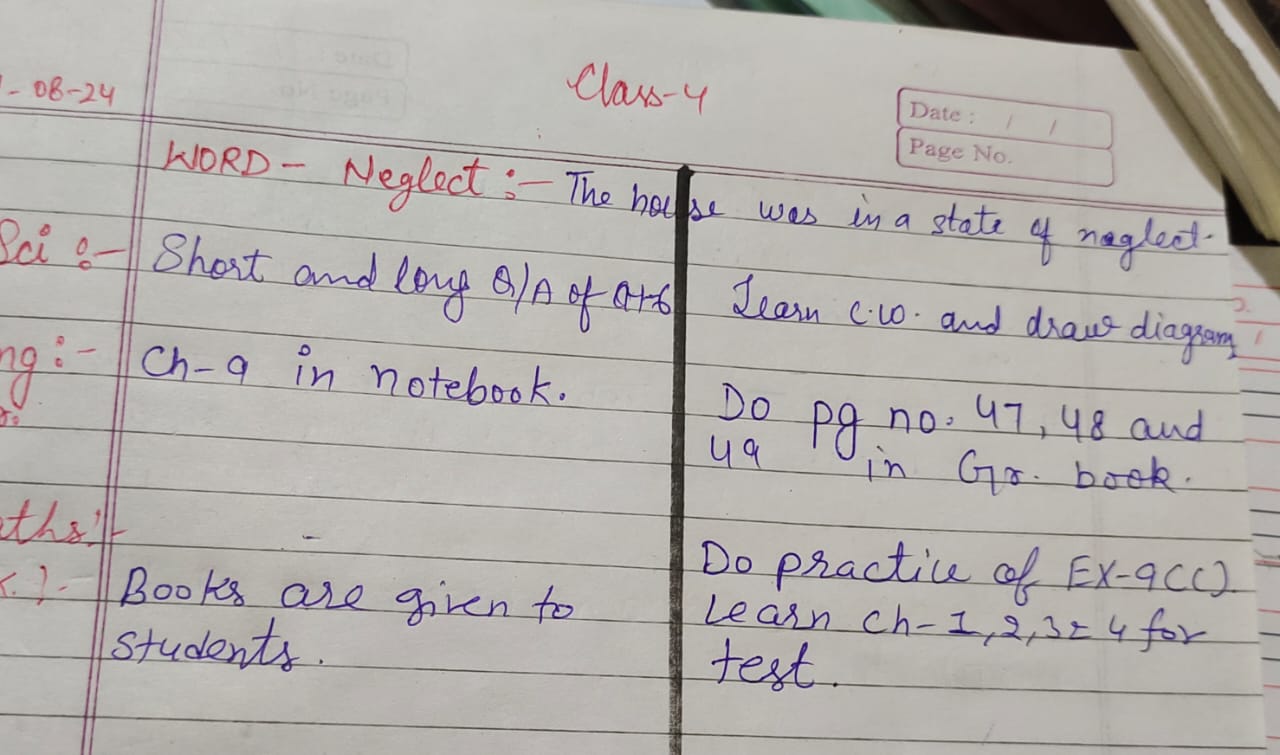 - 08-24
Class-4
Date : / /
Page No.
WORD - Neglect :- The house was in a state of neglect.
Sci :- Short and long Q/A of Learn c.w. and draw diagram
ng :- Ch-9 in notebook. Do pg no. 47, 48 and
49 in Gr. book.
ths :- - Do practice of EX-9(C)
Books are given to Learn ch-1,2,3 4 for
students. test.